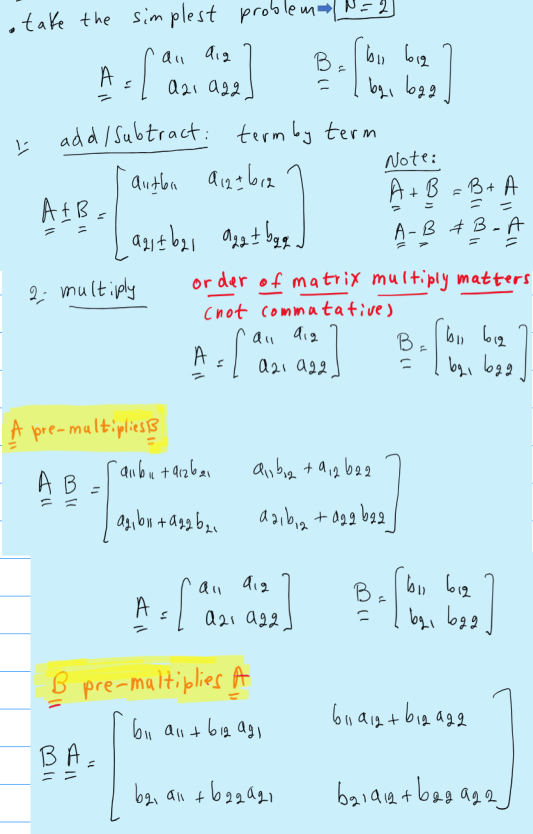 • take the simplest problem ➡ N = 2
A = [a11 a12
a21 a22] B = [b11 b12
b21 b22]
1- add/Subtract: term by term
Note:
A ± B = [a11±b11 a12±b12
a21±b21 a22±b22]
A + B = B + A
A - B ≠ B - A
2- multiply order of matrix multiply matters
(not commatative)
A = [a11 a12
a21 a22] B = [b11 b12
b21 b22]
A pre-multiplies B
A B = [a11b11 + a12b21 a11b12 + a12b22
a21b11 + a22b21 a21b12 + a22b22]
A = [a11 a12
a21 a22] B = [b11 b12
b21 b22]
B pre-multiplies A
B A = [b11 a11 + b12 a21 b11 a12 + b12 a22
b21 a11 + b22 a21 b21 a12 + b22 a22]